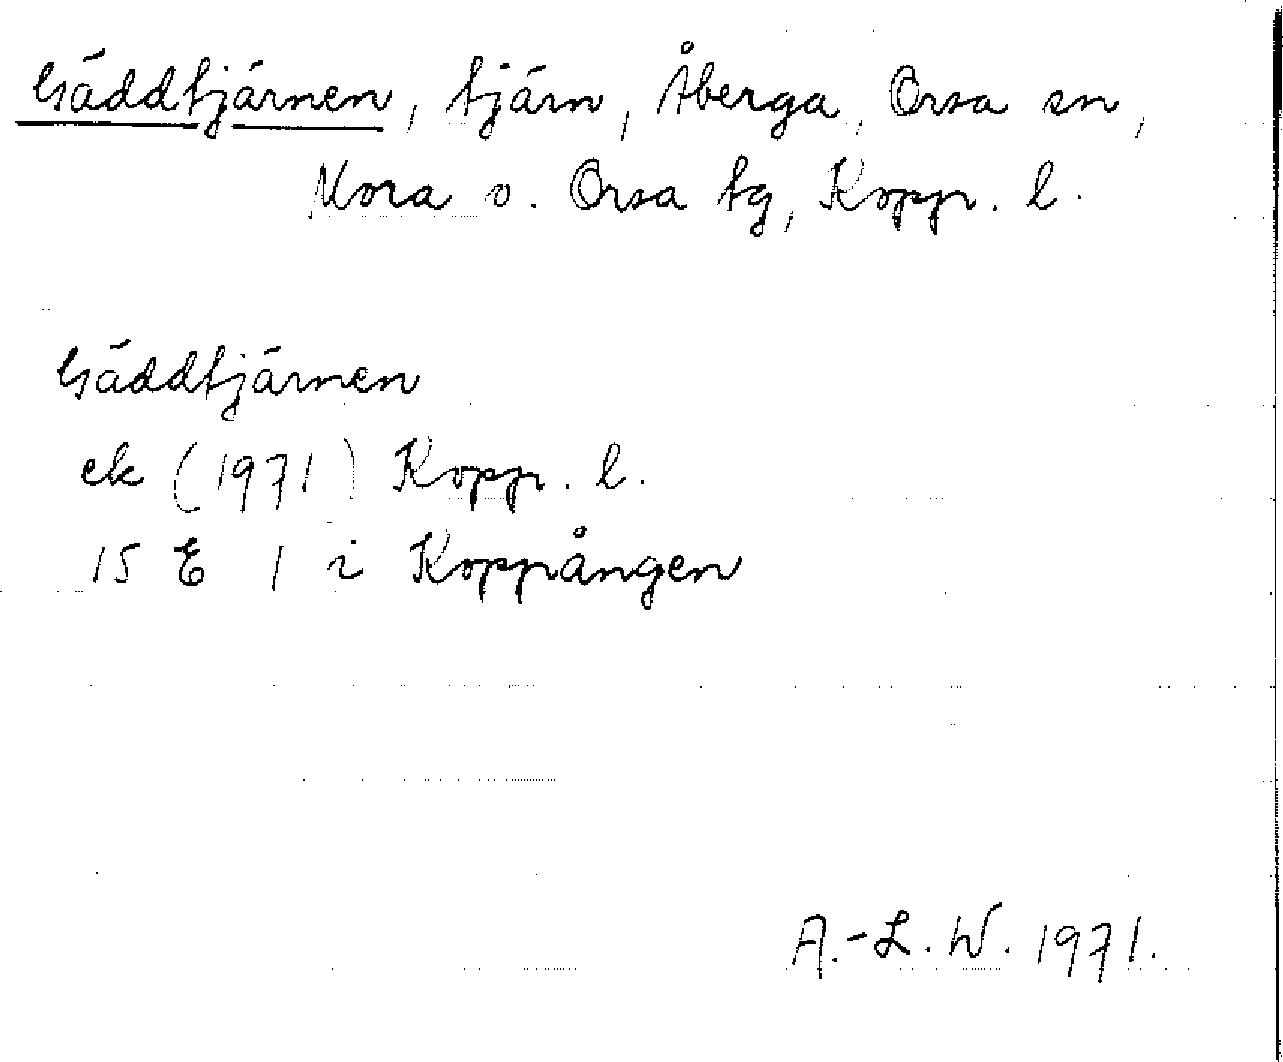 Gäddtjärnen, tjärn, Åberga, Orsa sn,
Mora o. Orsa tg, Kopp. l.
Gäddtjärnen
ek (1971) Kopp. l.
15 E 1 i Koppången
A.-L. W. 1971.